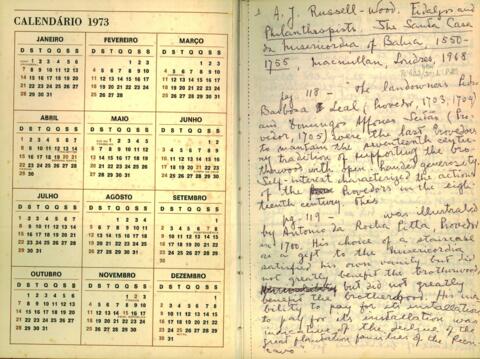 CALENDÁRIO 1973
JANEIRO
D S T Q Q S S
1 2 3 4 5 6
7 8 9 10 11 12 13
14 15 16 17 18 19 20
21 22 23 24 25 26 27
28 29 30 31
FEVEREIRO
D S T Q Q S S
1 2 3
4 5 6 7 8 9 10
11 12 13 14 15 16 17
18 19 20 21 22 23 24
25 26 27 28
MARÇO
D S T Q Q S S
1 2 3
4 5 6 7 8 9 10
11 12 13 14 15 16 17
18 19 20 21 22 23 24
25 26 27 28 29 30 31
ABRIL
D S T Q Q S S
1 2 3 4 5 6 7
8 9 10 11 12 13 14
15 16 17 18 19 20 21
22 23 24 25 26 27 28
29 30
MAIO
D S T Q Q S S
1 2 3 4 5
6 7 8 9 10 11 12
13 14 15 16 17 18 19
20 21 22 23 24 25 26
27 28 29 30 31
JUNHO
D S T Q Q S S
1 2
3 4 5 6 7 8 9
10 11 12 13 14 15 16
17 18 19 20 21 22 23
24 25 26 27 28 29 30
JULHO
D S T Q Q S S
1 2 3 4 5 6 7
8 9 10 11 12 13 14
15 16 17 18 19 20 21
22 23 24 25 26 27 28
29 30 31
AGOSTO
D S T Q Q S S
1 2 3 4
5 6 7 8 9 10 11
12 13 14 15 16 17 18
19 20 21 22 23 24 25
26 27 28 29 30 31
SETEMBRO
D S T Q Q S S
1
2 3 4 5 6 7 8
9 10 11 12 13 14 15
16 17 18 19 20 21 22
23 24 25 26 27 28 29
30
OUTUBRO
D S T Q Q S S
1 2 3 4 5 6
7 8 9 10 11 12 13
14 15 16 17 18 19 20
21 22 23 24 25 26 27
28 29 30 31
NOVEMBRO
D S T Q Q S S
1 2 3
4 5 6 7 8 9 10
11 12 13 14 15 16 17
18 19 20 21 22 23 24
25 26 27 28 29 30
DEZEMBRO
D S T Q Q S S
1
2 3 4 5 6 7 8
9 10 11 12 13 14 15
16 17 18 19 20 21 22
23 24 25 26 27 28 29
30 31
A. J. Russell-Wood. Fidalgos and
Philanthropists. The Santa Casa
da Misericordia of Bahia, 1550-
1755, Macmillan, Londres, 1968
pg 118 - the landowners Pedro
Barbosa Leal (Provedor, 1703, 1709)
and Domingos Affonso Sertão (Pro-
visor, 1705) were the last Provedors
to mantain the seventeenth centu-
ry tradition of supporting the bro-
therhood with open-handed generosity.
Self-interest characterized the actions
of the Provedors in the eigh-
teenth century. This
pg 119 - was illustrated
by Antonio da Rocha Pitta, Provedor
in 1700. His choice of a staircase
as a gift to the Misericordia
satisfied his own vanity but did
not greatly benefit the brotherhood,
but did not greatly
benefit the brotherhood. His ina-
bility to pay for its installation
to pay for its installation was
indicative of the decline of the
great plantation families of the Recon-
cavo